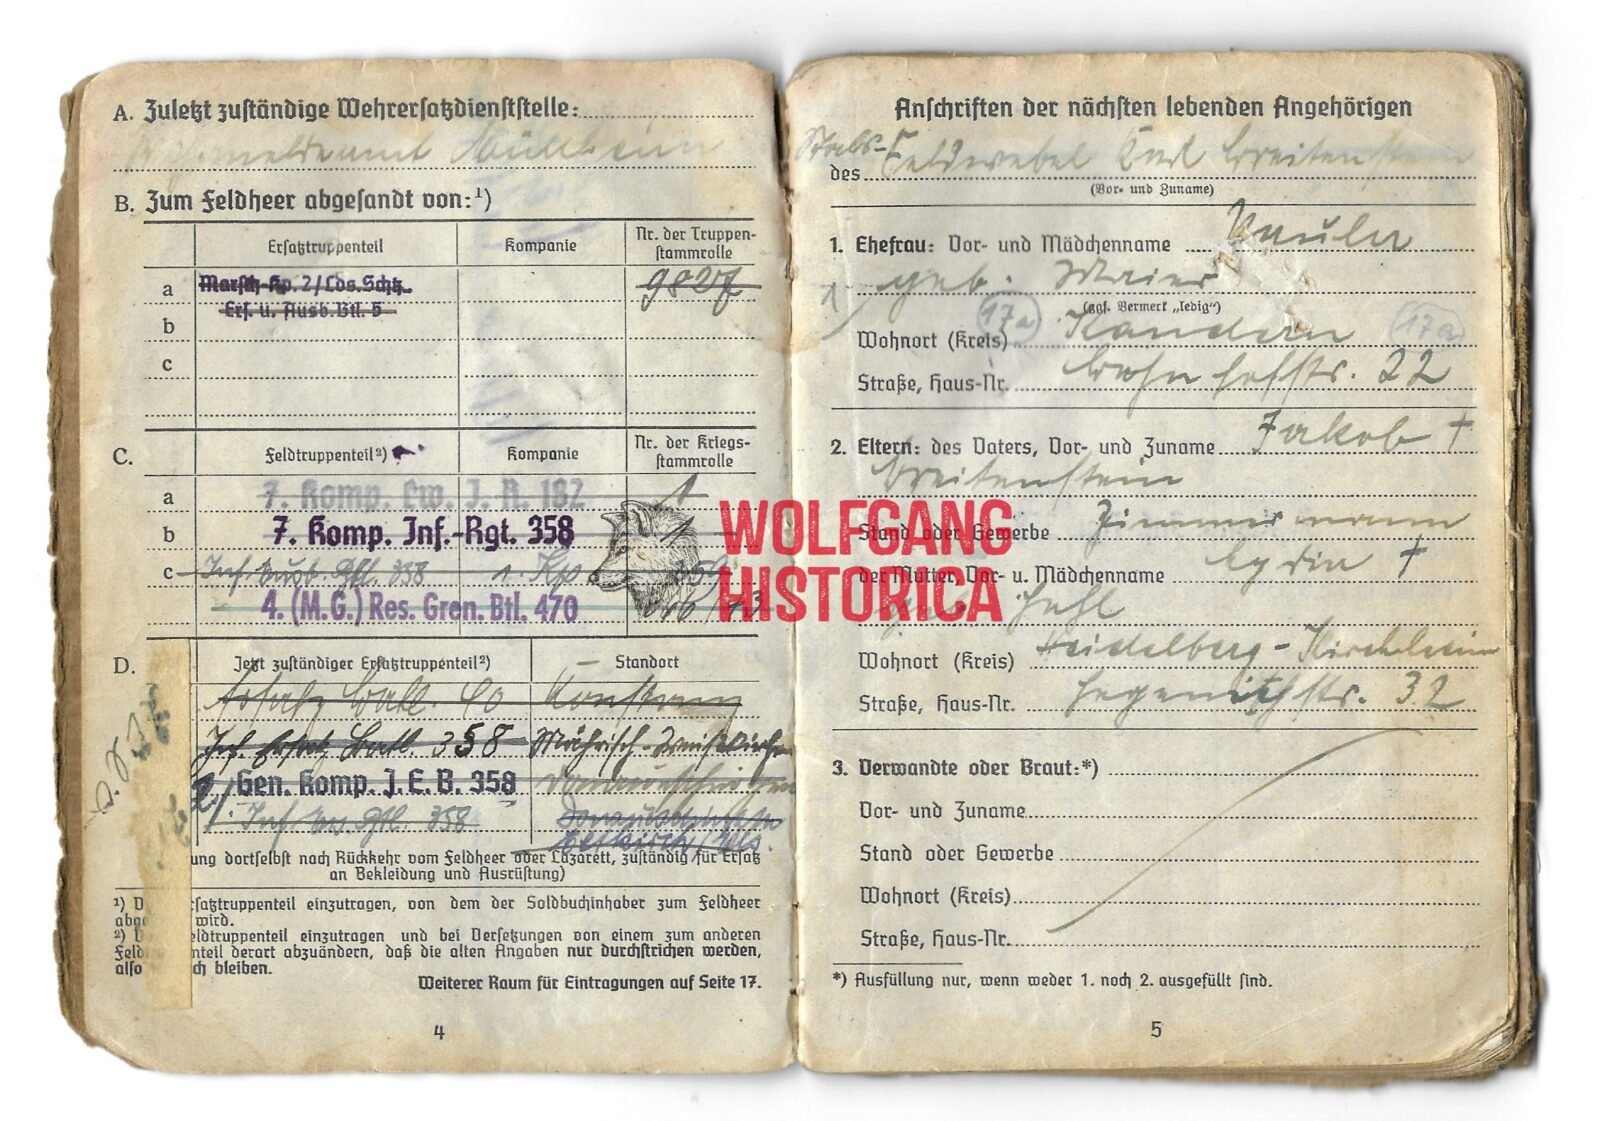 A. Zuletzt zuständige Wehrersatzdienststelle:
B. Zum Feldheer abgesandt von:¹)
Ersatztruppenteil
Kompanie
Nr. der Truppen-
stammrolle
a Marsch-Kp. 2/Lds. Schtz.
Ers. u. Ausb. Btl. 5
b
c
C.
Feldtruppenteil²)
Kompanie
Nr. der Kriegs-
stammrolle
a 7. Komp. Lw. J. R. 182 1
b 7. Komp. Inf.-Rgt. 358 1
c
4. (M.G.) Res. Gren. Btl. 470
D.
Jetzt zuständiger Ersatztruppenteil²)
Standort
Ersatz Batl. Konstanz
Inf. Ersatz Batl. 358 Mährisch-
2/ Gen. Komp. J. E. B. 358 Donaueschingen
358
ung dortselbst nach Rückkehr vom Feldheer oder Lazarett, zuständig für Ersatz
an Bekleidung und Ausrüstung)
satztruppenteil einzutragen, von dem der Soldbuchinhaber zum Feldheer
wird.
eldtruppenteil einzutragen und bei Versetzungen von einem zum anderen
nteil derart abzuändern, daß die alten Angaben nur durchstrichen werden,
also ch bleiben.
Weiterer Raum für Eintragungen auf Seite 17.
4
Anschriften der nächsten lebenden Angehörigen
Stabs-
des Feldwebel Karl Breitenstein
(Vor- und Zuname)
1. Ehefrau: Vor- und Mädchenname
geb. Maier
(ggf. Vermerk „ledig“)
17a
17a
Wohnort (Kreis) Kandern
Straße, Haus-Nr. Bahnhofstr. 22
2. Eltern: des Vaters, Vor- und Zuname Jakob †
Breitenstein
Stand oder Gewerbe Zimmermann
der Mutter, Vor- u. Mädchenname †
geb.
Wohnort (Kreis) Heidelberg-Kirchheim
Straße, Haus-Nr. Hegenichstr. 32
3. Verwandte oder Braut:*)
Vor- und Zuname
Stand oder Gewerbe
Wohnort (Kreis)
Straße, Haus-Nr.
*) Ausfüllung nur, wenn weder 1. noch 2. ausgefüllt sind.
5
WOLFGANG
HISTORICA